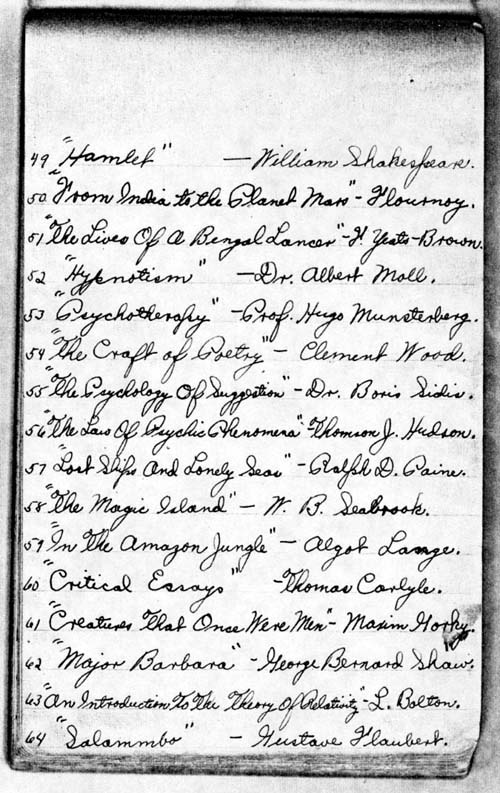 49 "Hamlet" — William Shakespeare.
50 "From India to the Planet Mars" - Flournoy.
51 "The Lives Of A Bengal Lancer" - F. Yeats-Brown.
52 "Hypnotism" — Dr. Albert Moll.
53 "Psychotherapy" - Prof. Hugo Munsterberg.
54 "The Craft of Poetry" - Clement Wood.
55 "The Psychology Of Suggestion" - Dr. Boris Sidis.
56 "The Law Of Psychic Phenomena" - Thomson J. Hudson.
57 "Lost Ships And Lonely Seas" - Ralph D. Paine.
58 "The Magic Island" - W. B. Seabrook.
59 "In The Amazon Jungle" - Algot Lange.
60 "Critical Essays" - Thomas Carlyle.
61 "Creatures That Once Were Men" - Maxim Gorky.
62 "Major Barbara" - George Bernard Shaw.
63 "An Introduction To The Theory Of Relativity" - L. Bolton.
64 "Salammbo" - Gustave Flaubert.